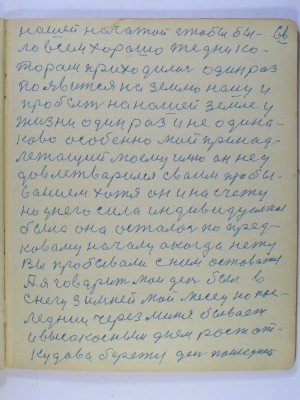 нашей накатой чтобы бы-
ло всем хорошо те дни ко-
торым приходилос один раз
появится на землю нашу и
пробыть на нашей земле у
жизни один раз и не одина-
ково особенно мой принад-
лежащий моему имю он не у
довлетварился своим пробы-
ванием хотя он и на счету
но у него сила индивидуалная
была она осталос по пред-
ковому началу а когда
Вы пробывали с ним
А я говорит мой ден был в
снегу зимней мой месец но пос-
ледний через меня бывает
и высакосным днём рост от-
кудова берёть ден